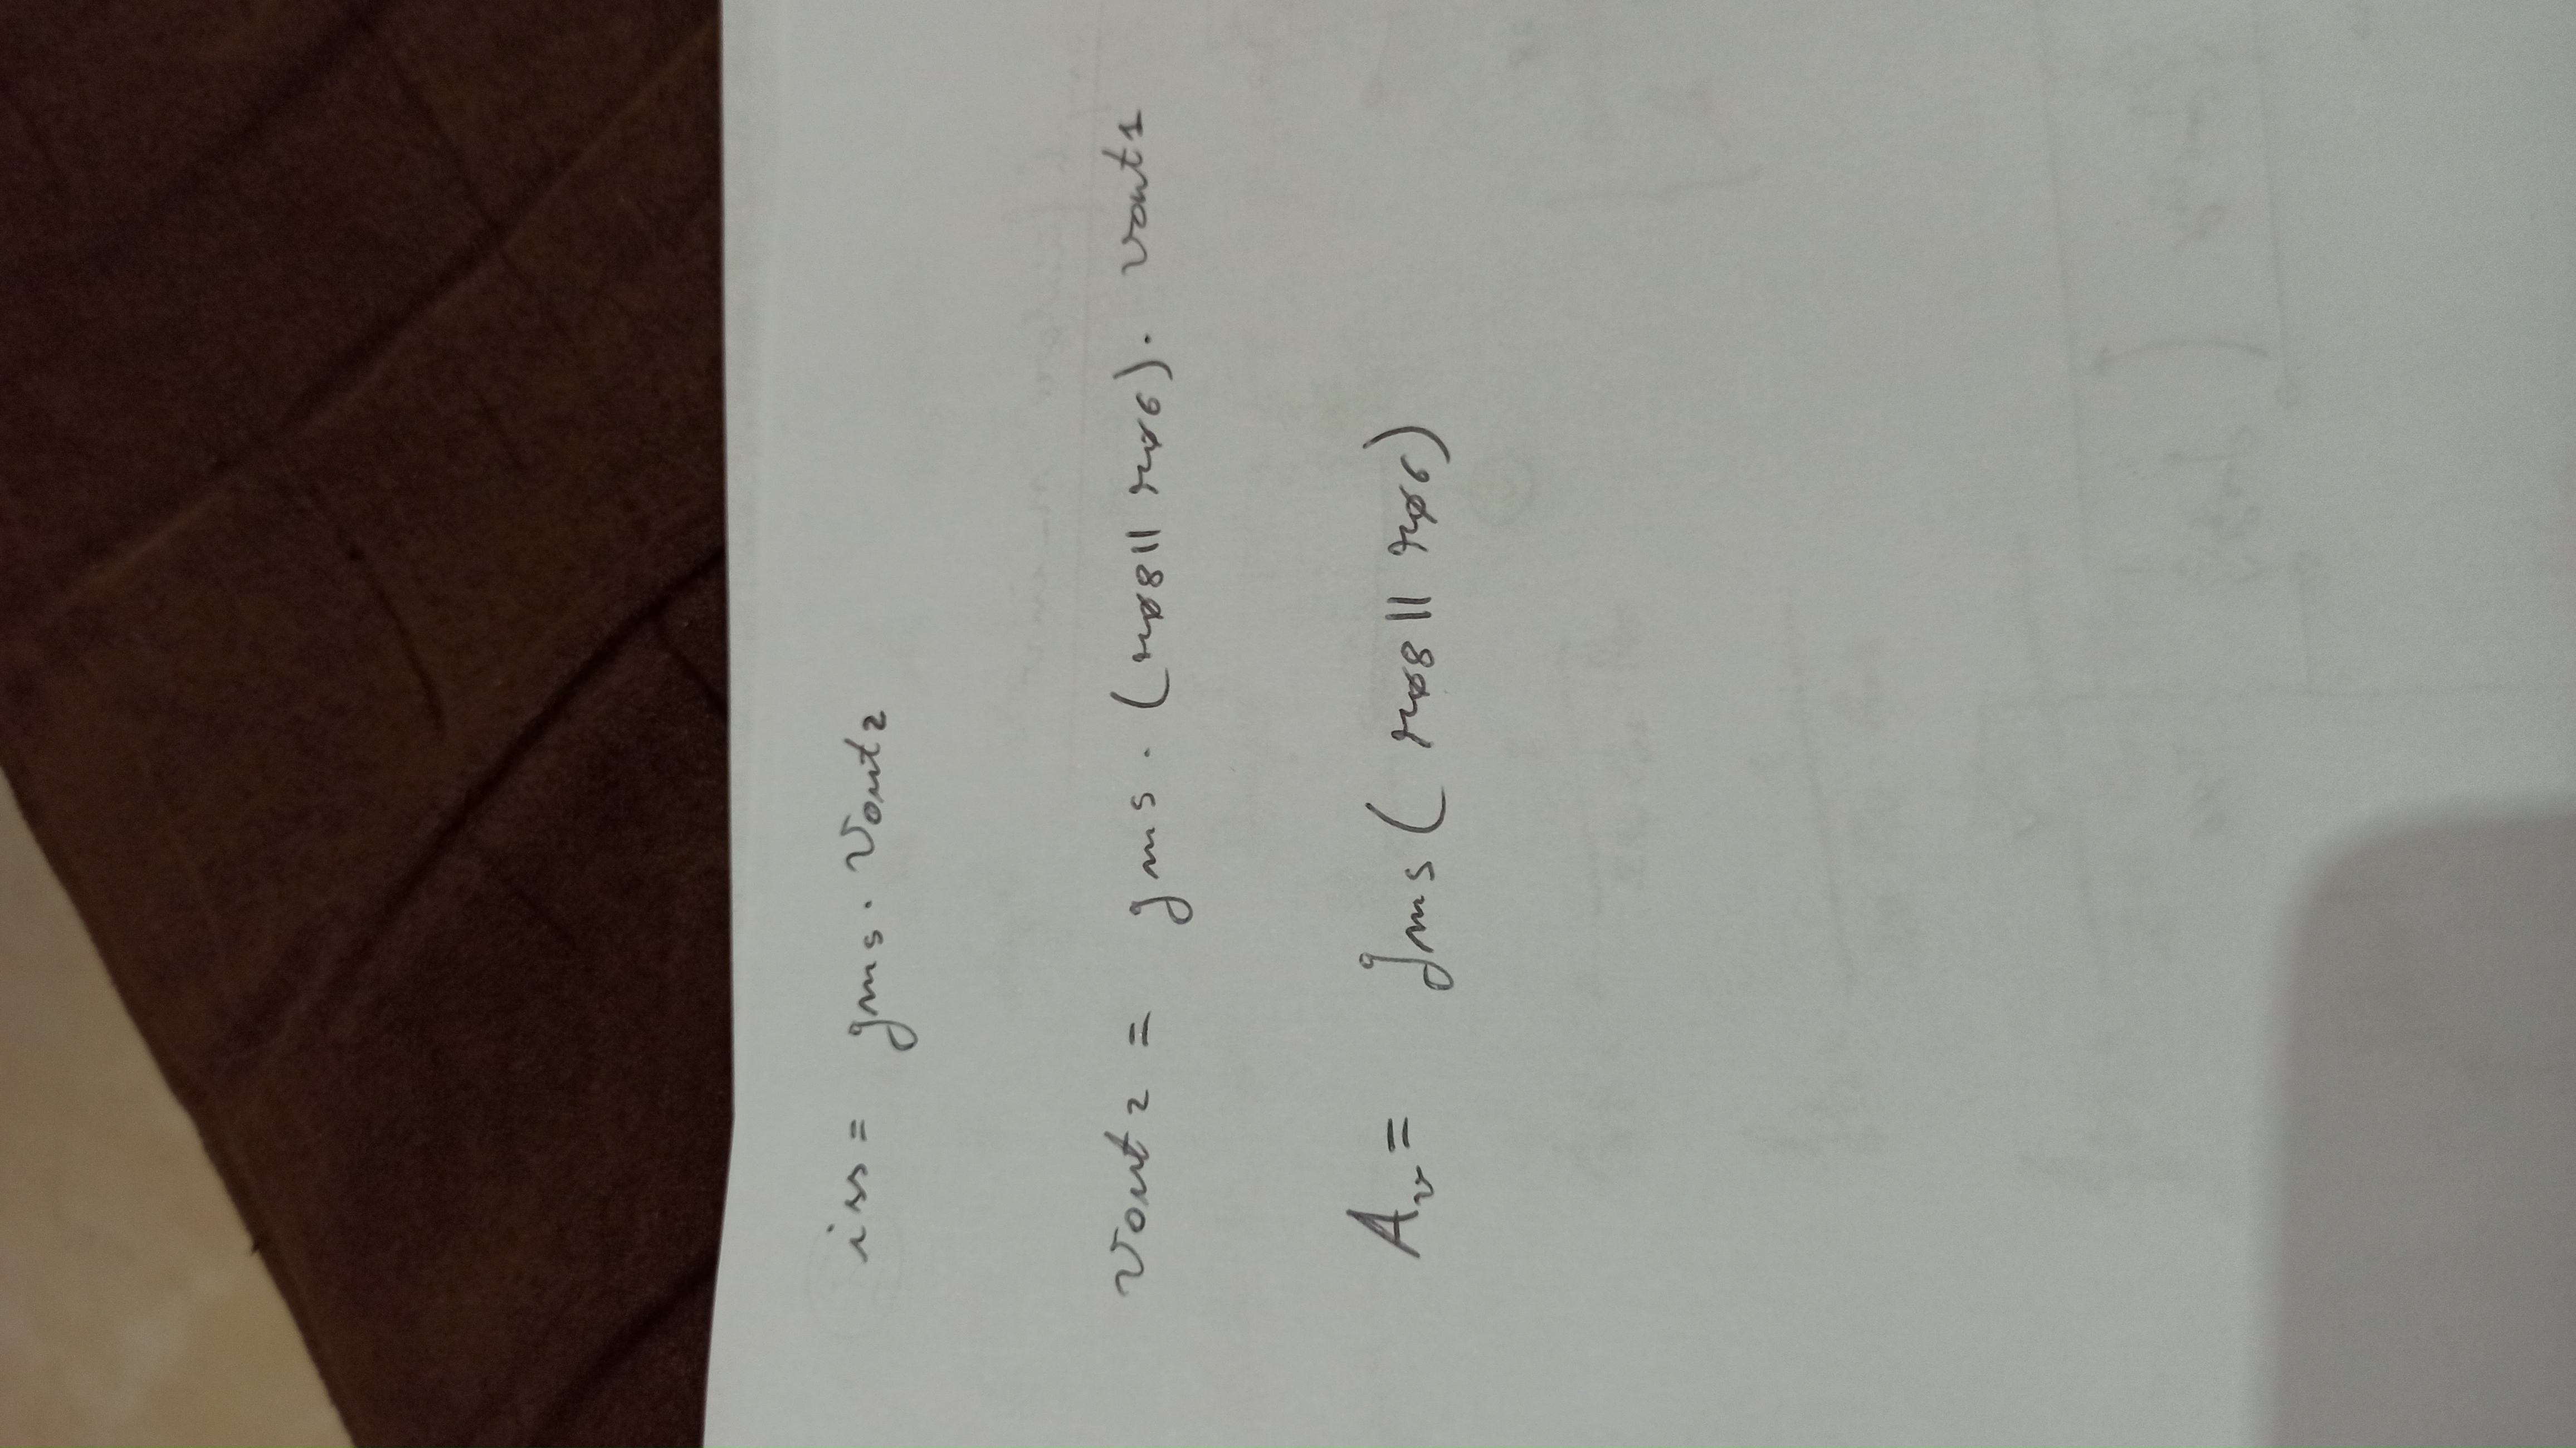 iss = gms . Vout2
Vout2 = gms . (rø8 || rø6) . Vout1
Av = gms ( rø8 || rø6)